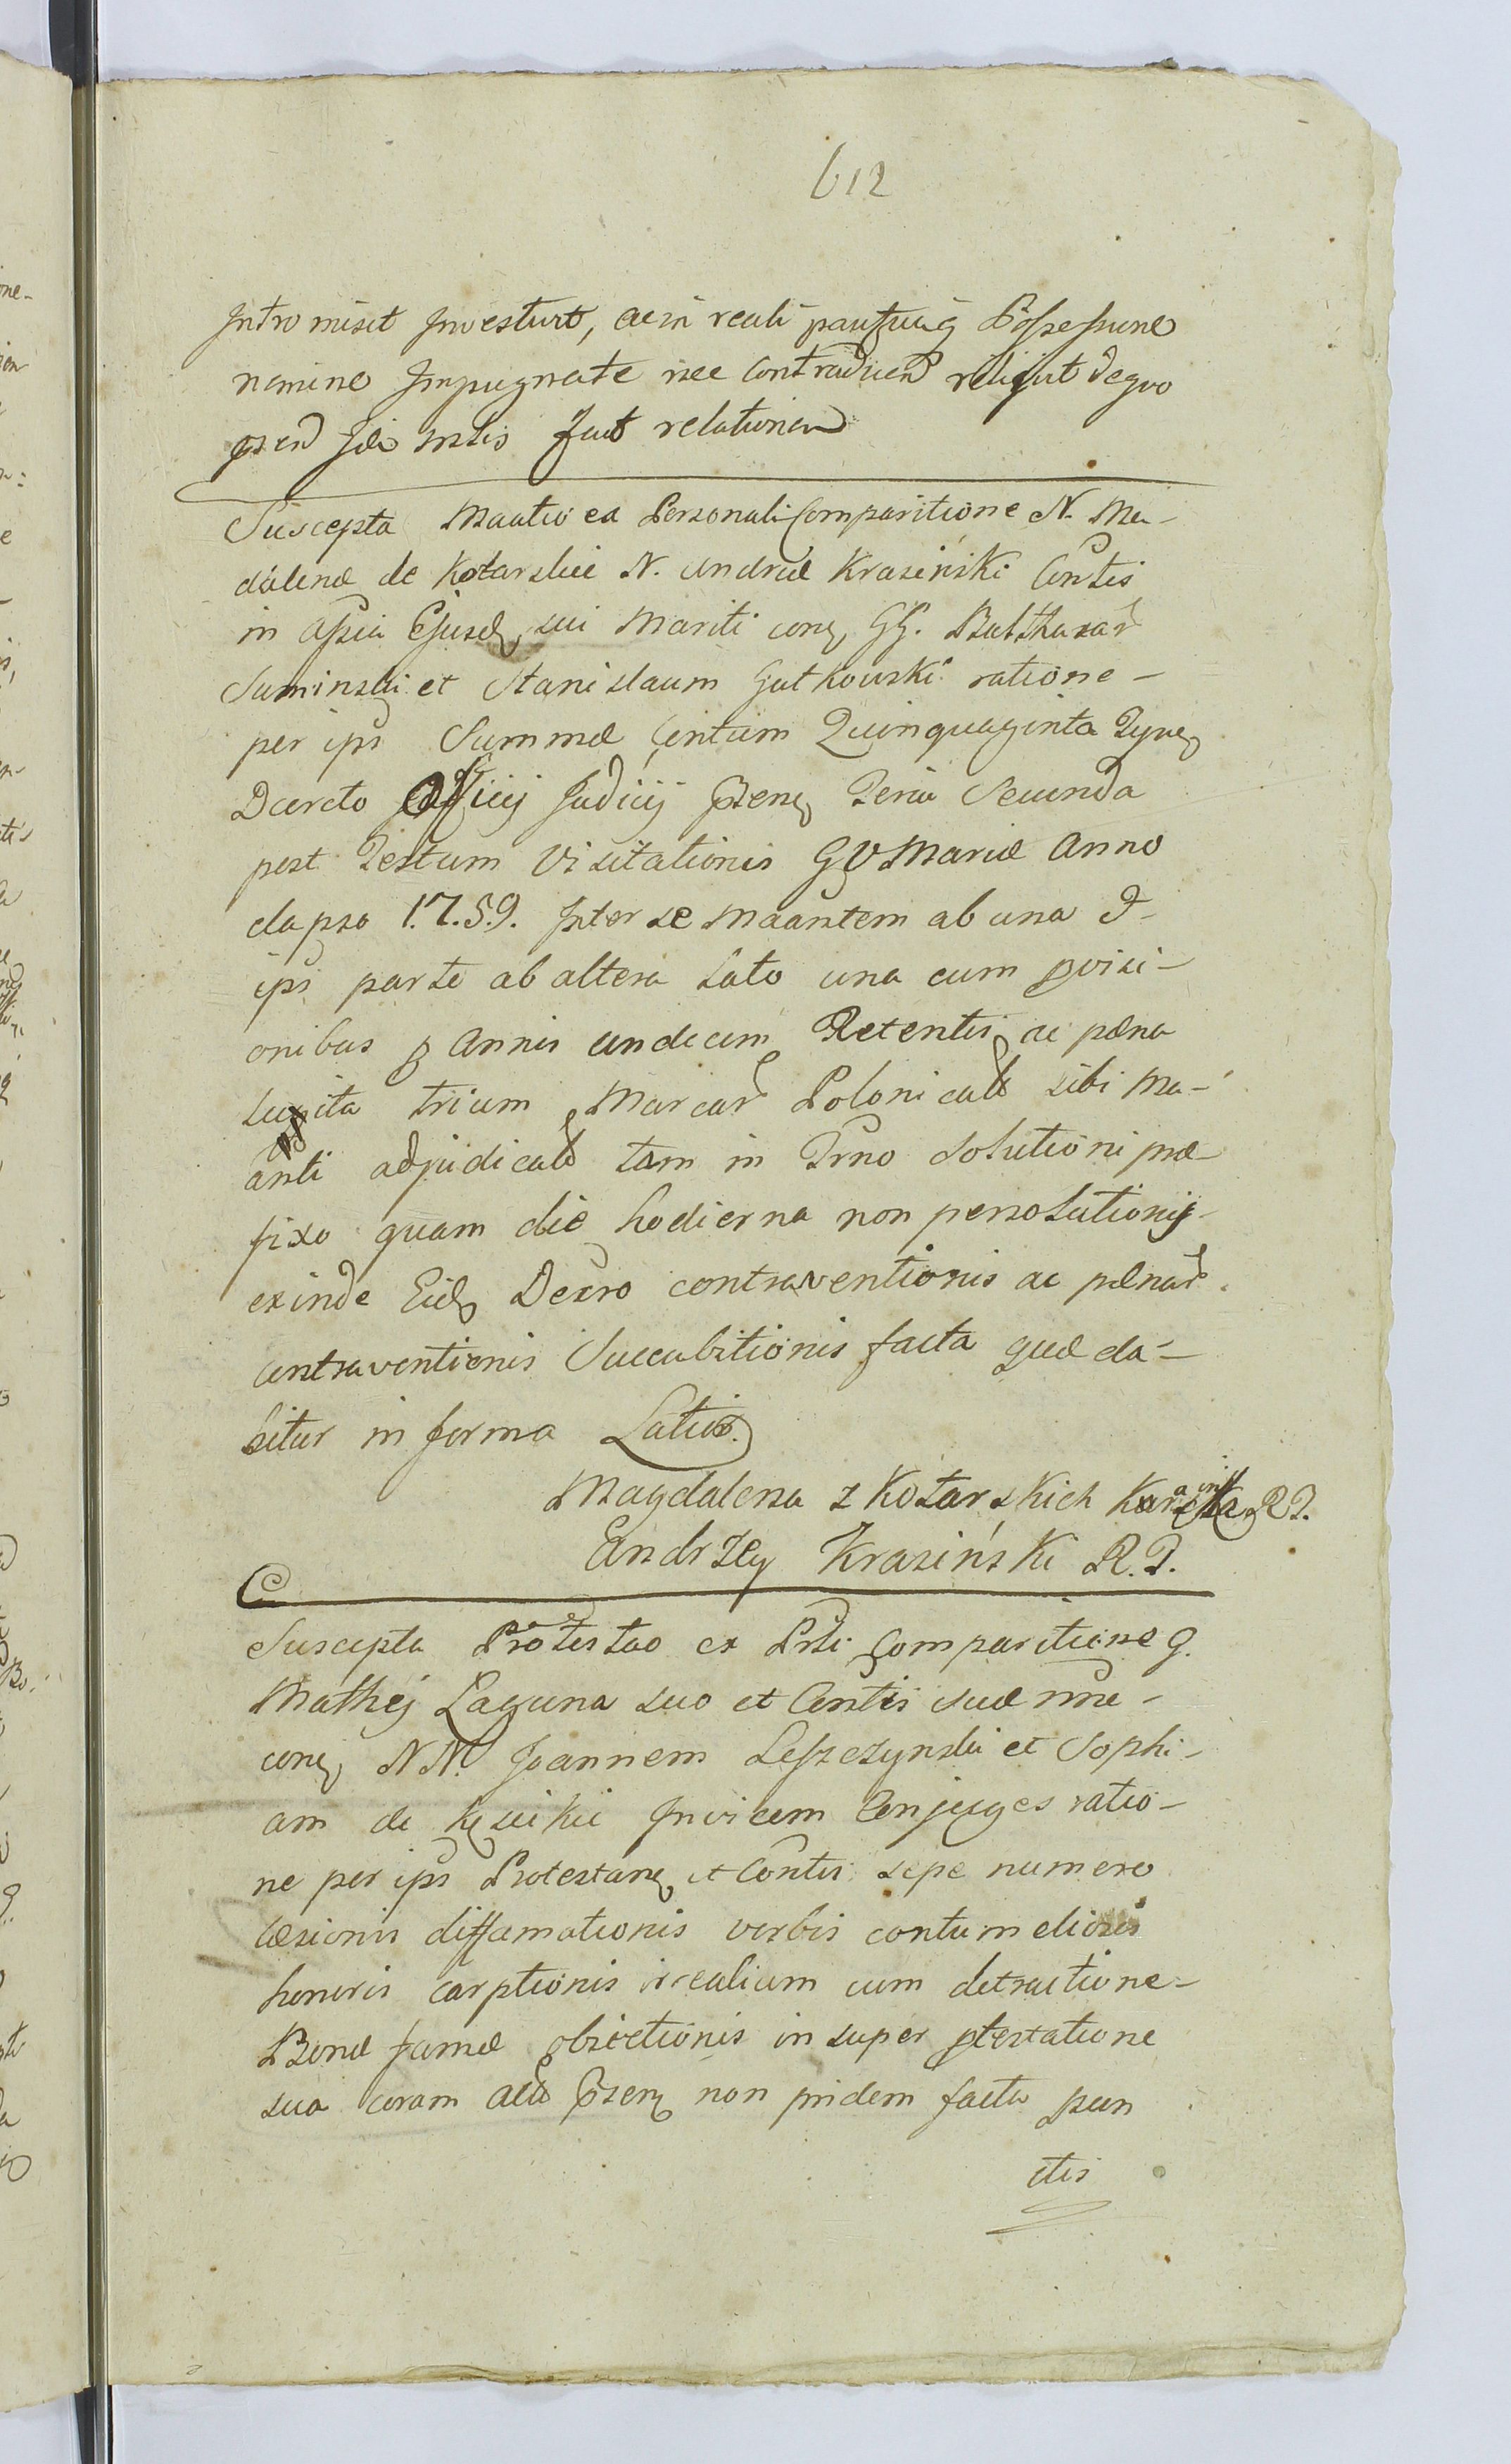 612
Intromisit Investivit, ac in reali possessione
nemine Impugnate nec Contradicen reliquit de quo
psen relationem
Suscepta Maatio ex Personali Comparitione N. Ma-
dalenæ de Kotarskie N. Andreæ Krasiński Contis
in assia Ejusd sui Mariti conq GG. Balthazar
Suminski et Stanislaum Gutkowski ratione-
per ips Summæ Centum Quinquaginta Tynf
Decreto Officij Judicij Psenq Feria Secunda
post Festum Visitationis GVMariæ Anno
elapso 1.7.5.9. Inter se Maantem ab una &
ips parte ab altera Lato una cum pvisi-
onibus p annis undecim Retentis ac pœna
trium Marcar Polonical sibi Ma-
anti adjudicat tam in Trno Solutioni præ-
fixo quam die hodierna non persolutionis
exinde Eid Decro contraventionis ac pœnar
contraventionis Succubitionis facta quæ da-
bitur in forma Latior.
Magdalena z Kotarskich Krasinska R P.
Andrzey Krasiński R. P.
Suscepta Protestao ex Prli Comparitione G.
Mathej Laguna suo et Contis suæ nne-
conq NN. Joannem Leszczynski et Sophi-
am de Invicem Conjuges ratio-
ne per ips Protestanq et Contis sepe numero
læsionis diffamationis verbis contumeliosis
honoris carptionis irrealium cum detractione-
Bonæ famæ obiectionis in super ptestatione
sua coram actis Psenq non pridem facta pun
ctis